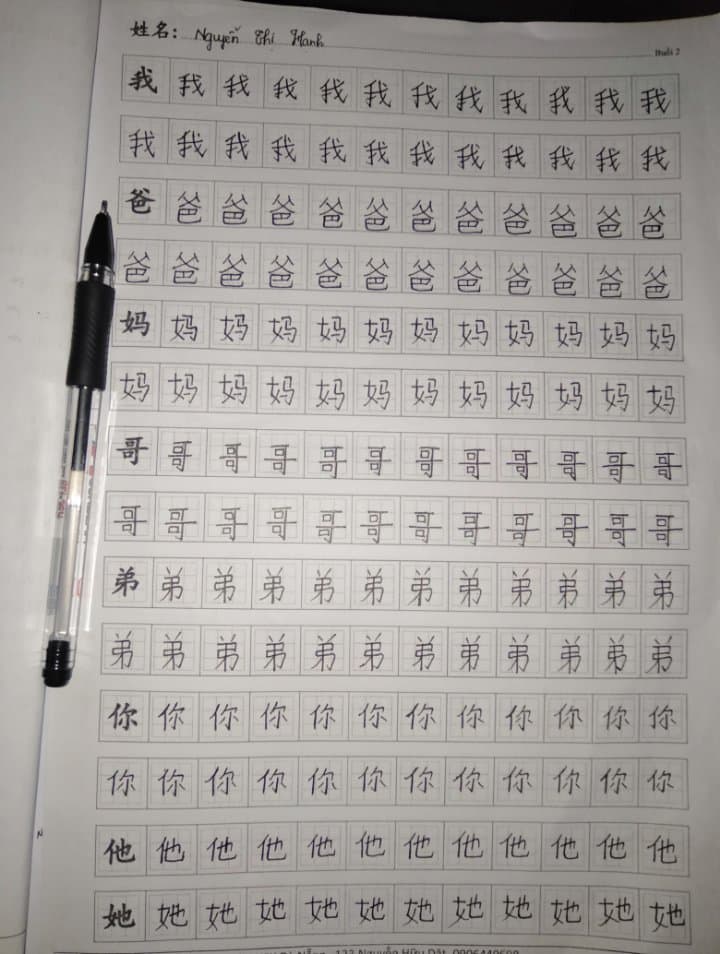 姓名: Nguyễn Thị Hạnh
Buổi 2
我 我 我 我 我 我 我 我 我 我 我 我
我 我 我 我 我 我 我 我 我 我 我 我
爸 爸 爸 爸 爸 爸 爸 爸 爸 爸 爸 爸
爸 爸 爸 爸 爸 爸 爸 爸 爸 爸 爸 爸
妈 妈 妈 妈 妈 妈 妈 妈 妈 妈 妈 妈
妈 妈 妈 妈 妈 妈 妈 妈 妈 妈 妈 妈
哥 哥 哥 哥 哥 哥 哥 哥 哥 哥 哥 哥
哥 哥 哥 哥 哥 哥 哥 哥 哥 哥 哥 哥
弟 弟 弟 弟 弟 弟 弟 弟 弟 弟 弟 弟
弟 弟 弟 弟 弟 弟 弟 弟 弟 弟 弟 弟
你 你 你 你 你 你 你 你 你 你 你 你
你 你 你 你 你 你 你 你 你 你 你 你
他 他 他 他 他 他 他 他 他 他 他 他
她 她 她 她 她 她 她 她 她 她 她 她
Nguyễn Hữu Dật